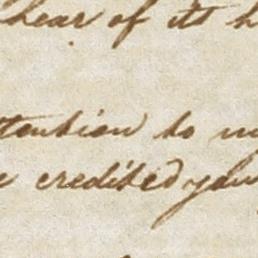 hear of its h
tention to m
credited your